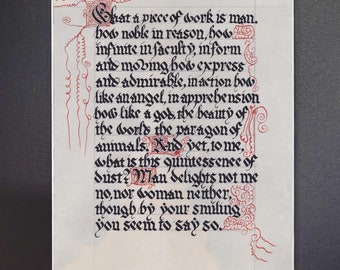 What a piece of work is man.
how noble in reason, how
infinite in faculty, in form
and moving how express
and admirable, in action how
like an angel, in apprehension
how like a god, the beauty of
the world, the paragon of
animals. And yet, to me,
what is this quintessence of
dust? Man delights not me
no, nor woman neither,
though by your smiling
you seem to say so.